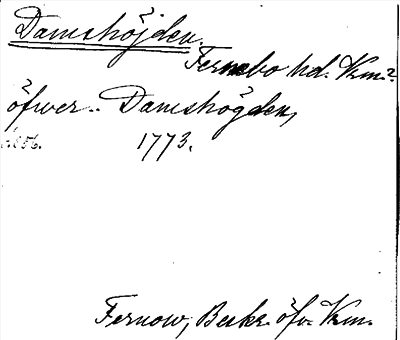 Damshöjden.
Fernebo hd. Vrm.
öfwer.. Damshögden,
s. 56. 1773.
Fernow, Beskr. öfv. Vrm.